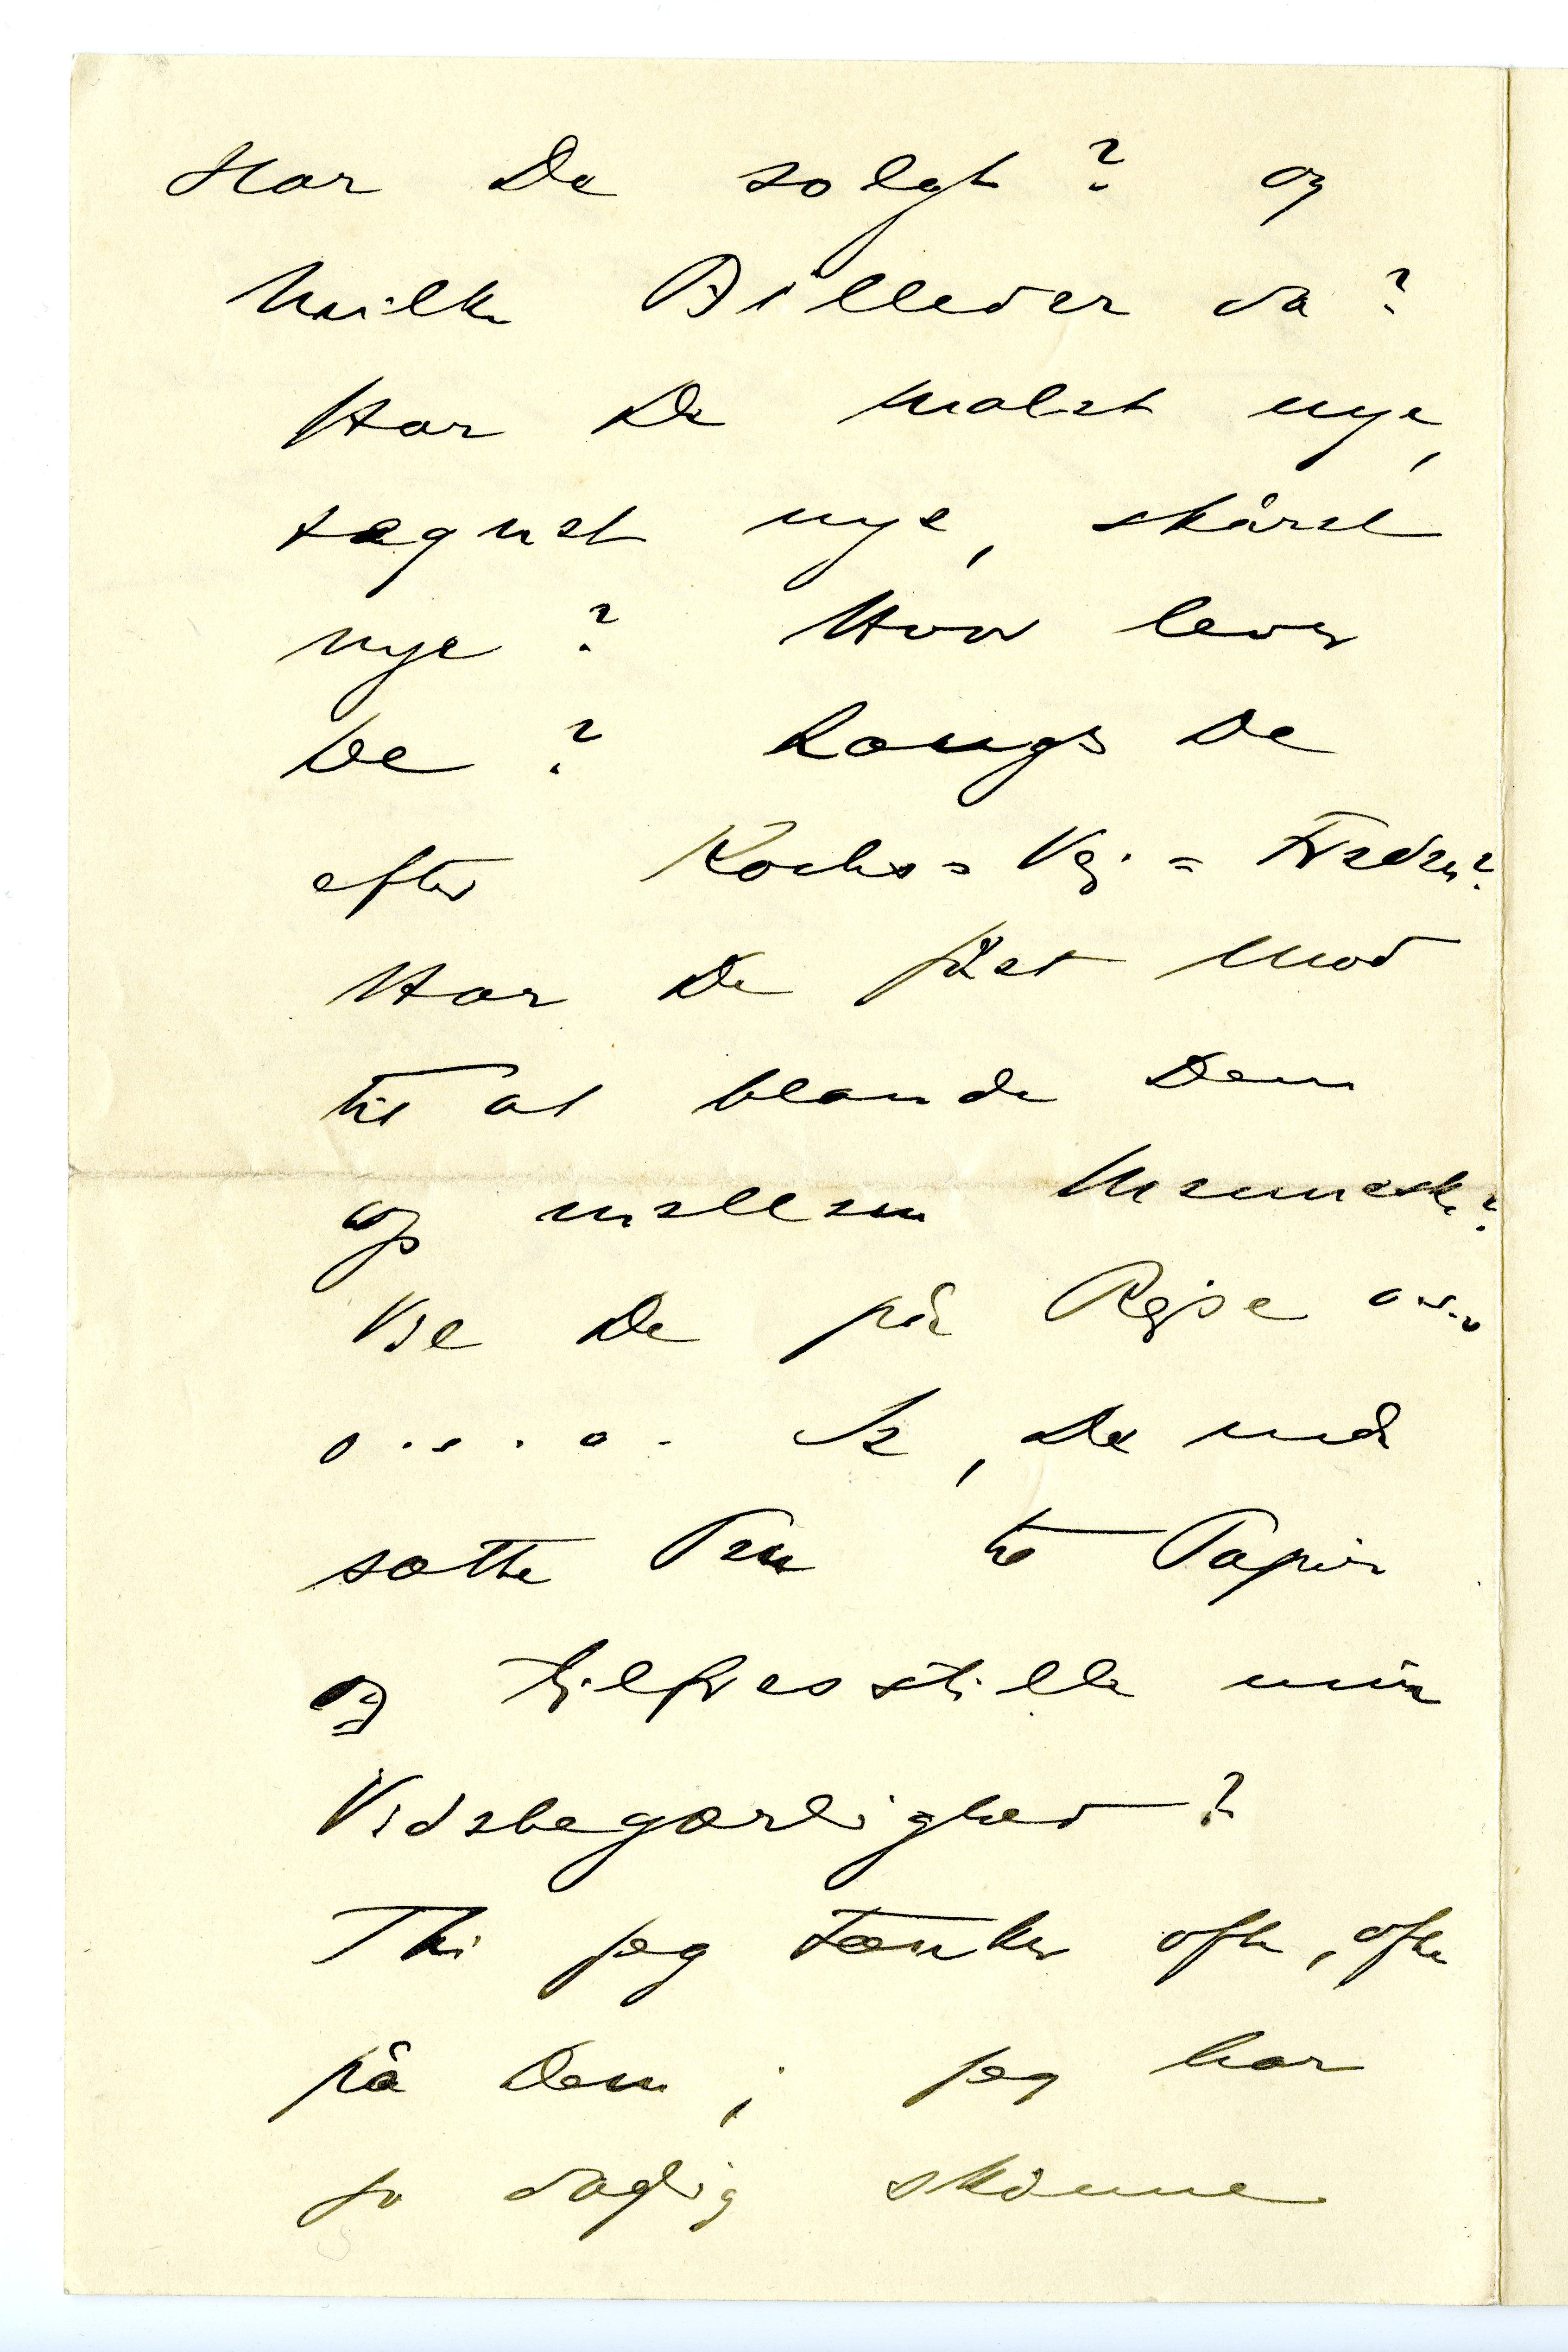 Har De solgt? og
hvilke Billeder da?
Har De malet nye,
tegnet nye, skåret
nye? Hvor lever
De? Længes De
efter Kochs=Vej=Freden?
Har De fåET Mod
til at blande Dem
op mellem Mennesker?
Vil De på Rejse o.s.v.
o.s.v. Se, De må
sætte Pen til Papir
og tilfresstille min
Videbegærlighed?
Thi jeg tænker ofte, ofte
på Dem; jeg har
jo daglig skönne